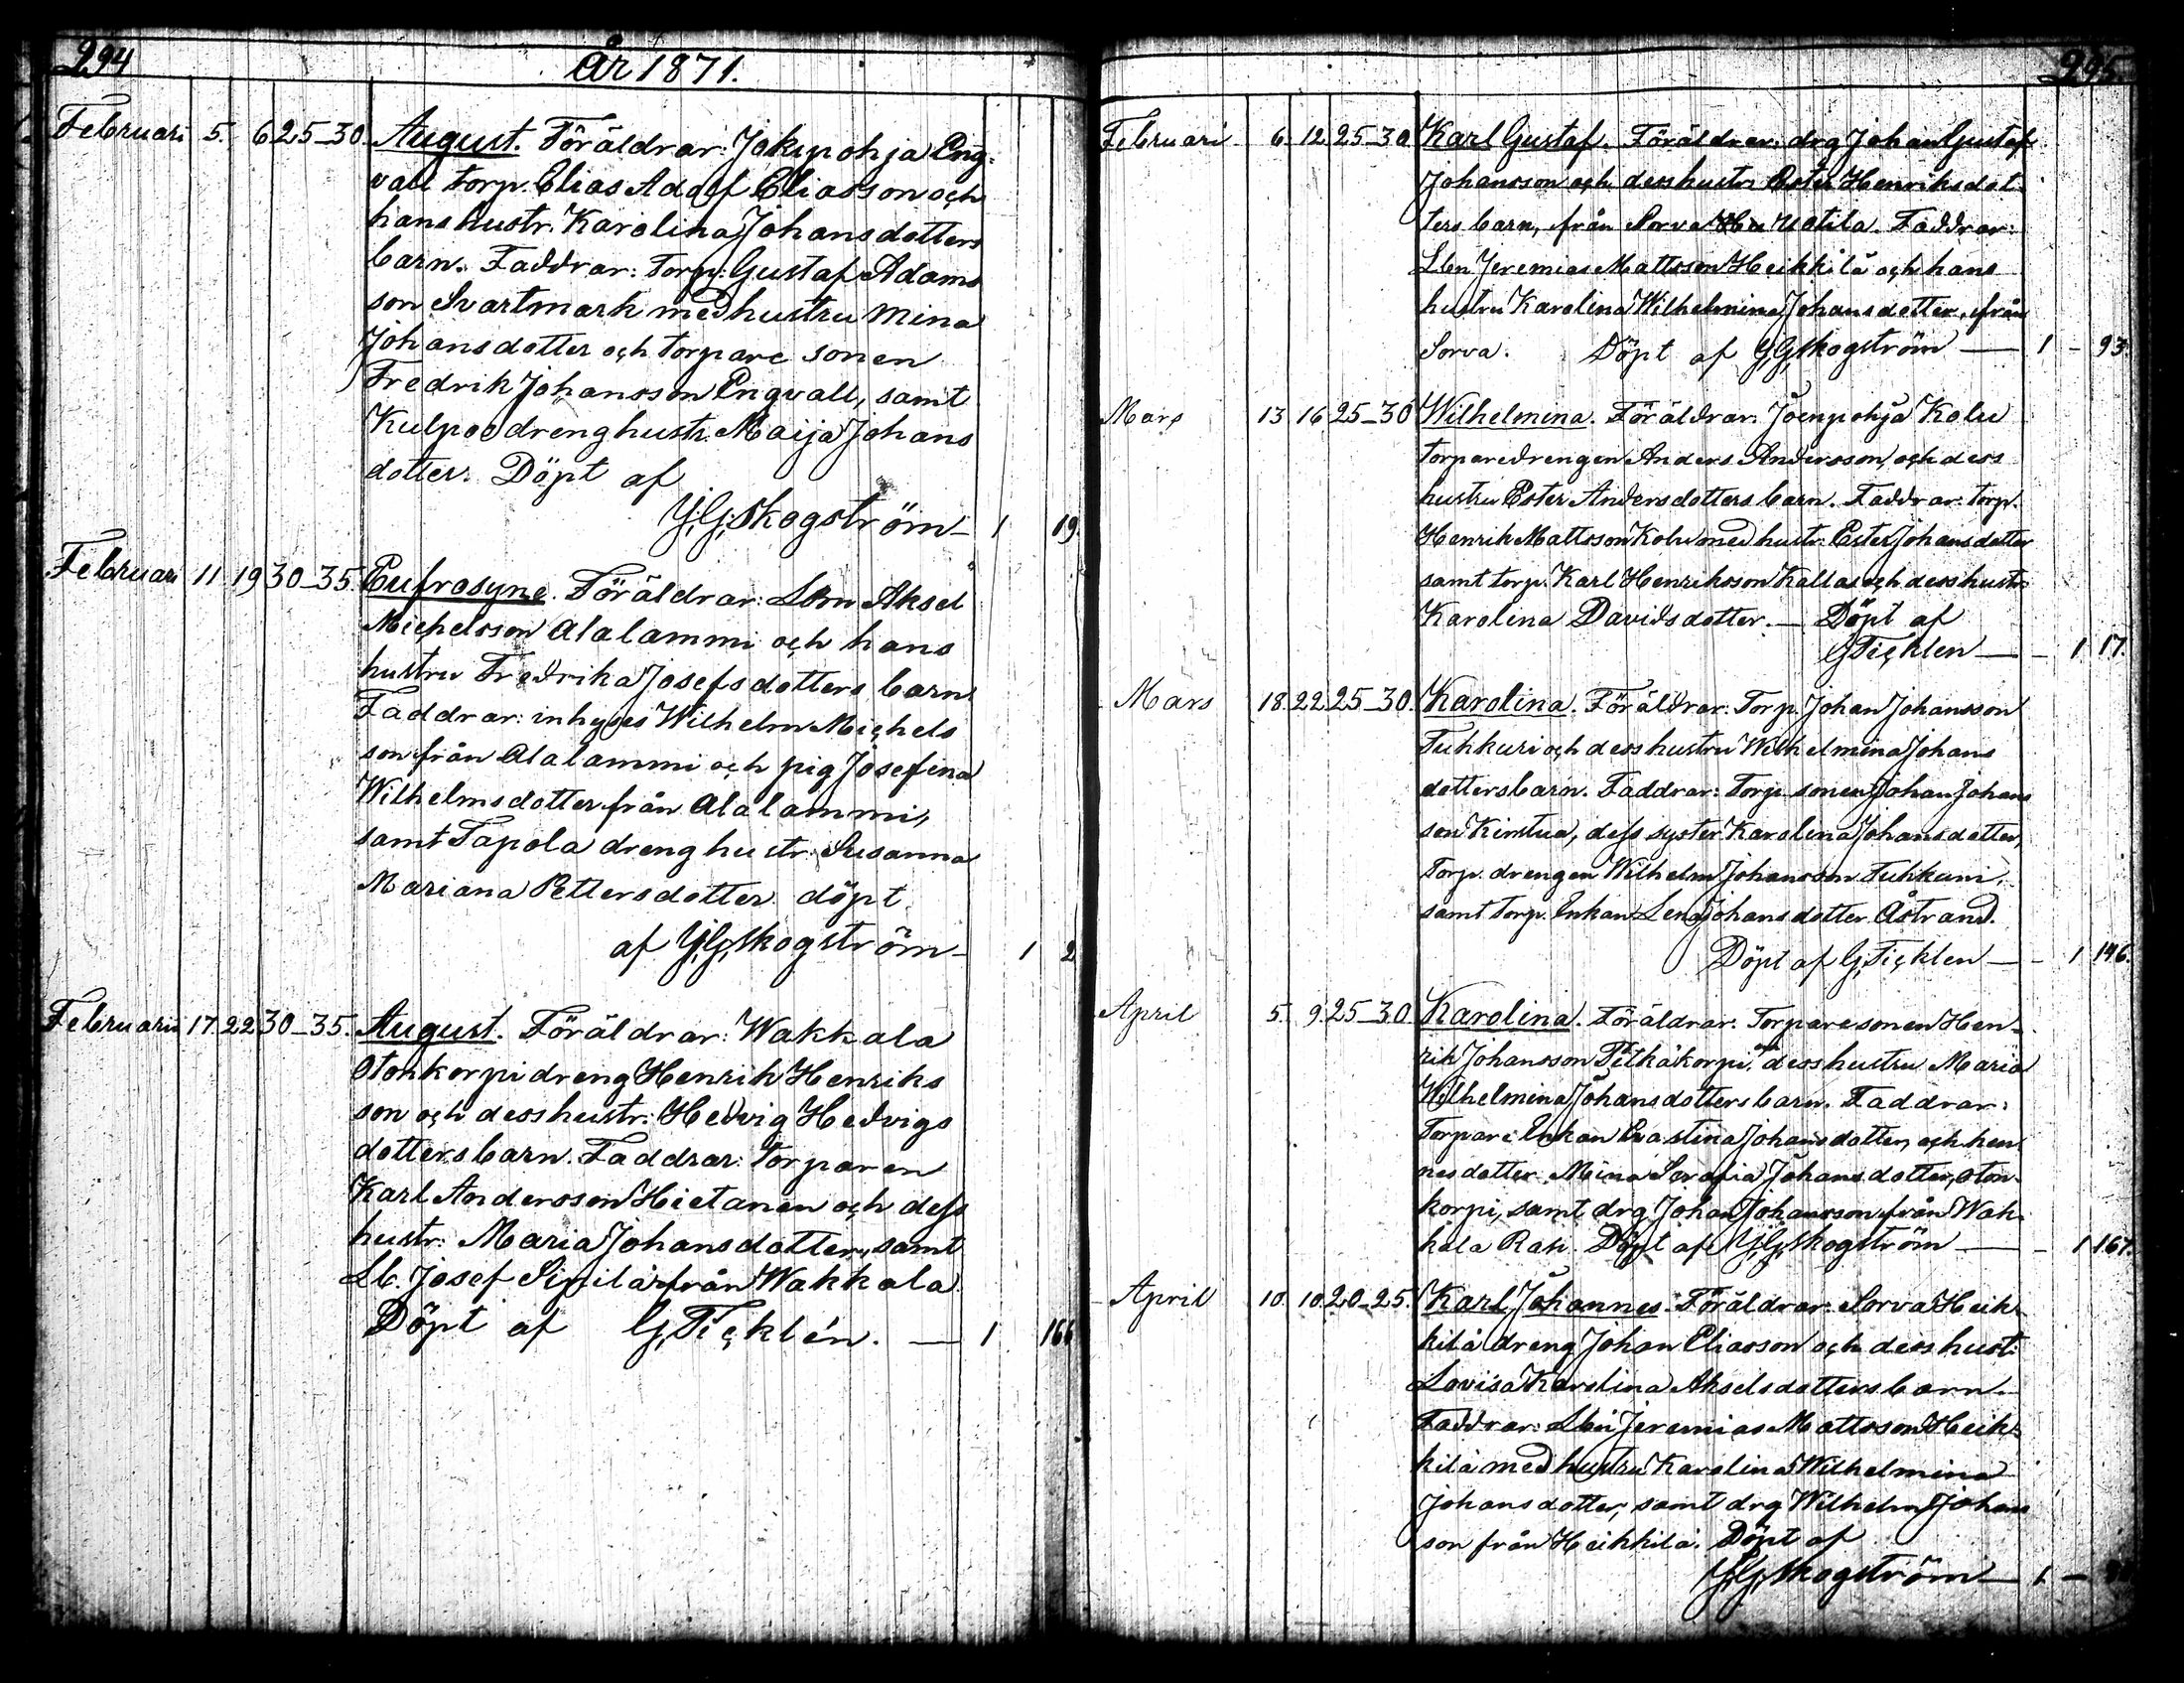 294
År 1871.
Februari 5. 6 25-30. August. Föräldrar: Jokipohja Eng-
vall torp. Elias Adolf Eliasson och
hans hustr. Karolina Johansdotters
barn. Faddrar: Torp: Gustaf Adams
son Svartmark med hustru Mina
Johansdotter och torpare sonen
Fredrik Johansson Engvall, samt
Kulpoo drenghustr. Maija Johans
dotter. Döpt af
J.G.Skogström - 1 19.
Februari 11 19 30-35. Eufrosyne. Föräldrar: Lbn Aksel
Michelsson Alalammi och hans
hustru Fredrika Josefsdotters barn.
Faddrar: inhyses Wilhelm Michels
son från Alalammi och pig Josefina
Wilhelmsdotter från Alalammi,
samt Tapola drenghustr: Susanna
Mariana Pettersdotter. döpt
af J.G.Skogström - 1 2
Februari 17. 22 30-35. August. Föräldrar: Wakkala
Otonkorpi dreng Henrik Henriks
son och dess hustr: Hedvig Hedvigs
dotters barn. Faddrar: Torparen
Karl Andersson Hietanen och dess
hustr: Maria Johansdotter, samt
Lb. Josef Sipilä från Wakkala
Döpt af G.Ticklén. — 1 166
295.
Februari 6 12 25-30 Karl Gustaf. Föräldrar: drg Johan Gustaf
Johansson och dess hustr. Ester Henriksdot-
ters barn, från Sorva Uotila. Faddrar:
Lbn Jeremias Mattsson Heikkilä och hans
hustru Karolina Wilhelmina Johansdotter, från
Sorva. Döpt af J.G.Skogström — 1 - 93.
Mars 13 16 25-30 Wilhelmina. Föräldrar: Joenpohja Kolu
torparedrengen Anders Andersson, och dess
hustru Ester Andersdotters barn. Faddrar: torp.
Henrik Mattsson Kolu med hustr: Ester Johansdotter
samt torp. Karl Henriksson Kallas och dess hustr:
Karolina Davidsdotter. — Döpt af
G Ticklen — - 1 17.
Mars 18. 22. 25-30. Karolina. Föräldrar: Torp. Johan Johansson
Tuhkuri och dess hustru Wilhelmina Johans
dotters barn. Faddrar: Torp. sonen Johan Johans
son Kirstua, dess syster Karolina Johansdotter,
Torp. drengen Wilhelm Johansson Tuhkuri,
samt torp. Enkan Lena Johansdotter Åstrand.
Döpt af G.Ticklen — - 1 146.
April 5. 9. 25-30. Karolina. Föräldrar: Torparesonen Hen-
rik Johansson Pitkäkorpi, och dess hustru Maria
Wilhelmina Johansdotters barn. Faddrar:
Torpare Enkan Evastina Johansdotter, och hen
nes dotter Mina Serafia Johansdotter, Oton-
korpi, samt drg Johan Johansson från Wak-
kala Döpt af J.G.Skogström — - 1 167.
April 10. 10. 20-25. Karl Johannes. Föräldrar: Sorva Heik-
kilä dreng Johan Eliasson och dess hust:
Lovisa Karolina Akselsdotters barn.
Faddrar: Lbn Jeremias Mattsson Heik-
kilä med hustru Karolina Wilhelmina
Johansdotter, samt drg Wilhelm Johans
son från Heikkilä. Döpt af
J.G.Skogström — 1 -